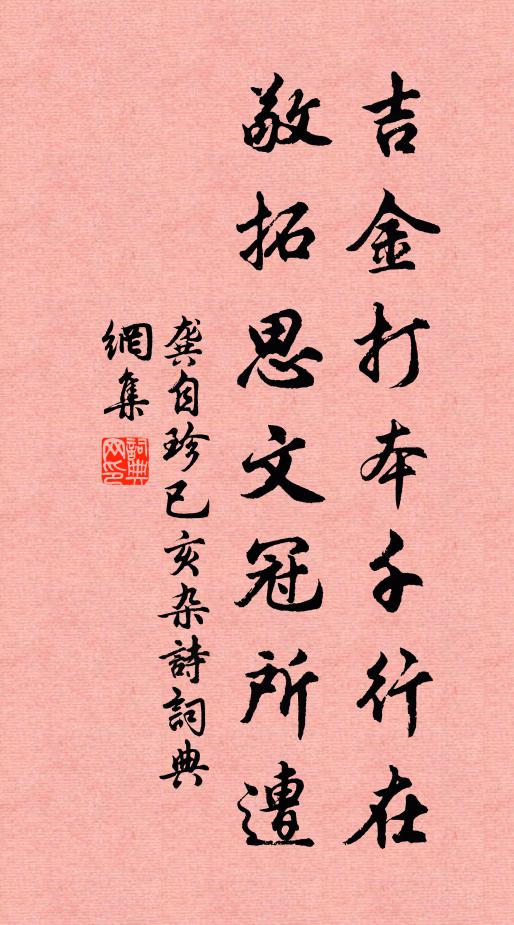 吉金打本千行在
敬拓思文冠所遭
龔自珍已亥杂詩詞典
網集
詞典
网印